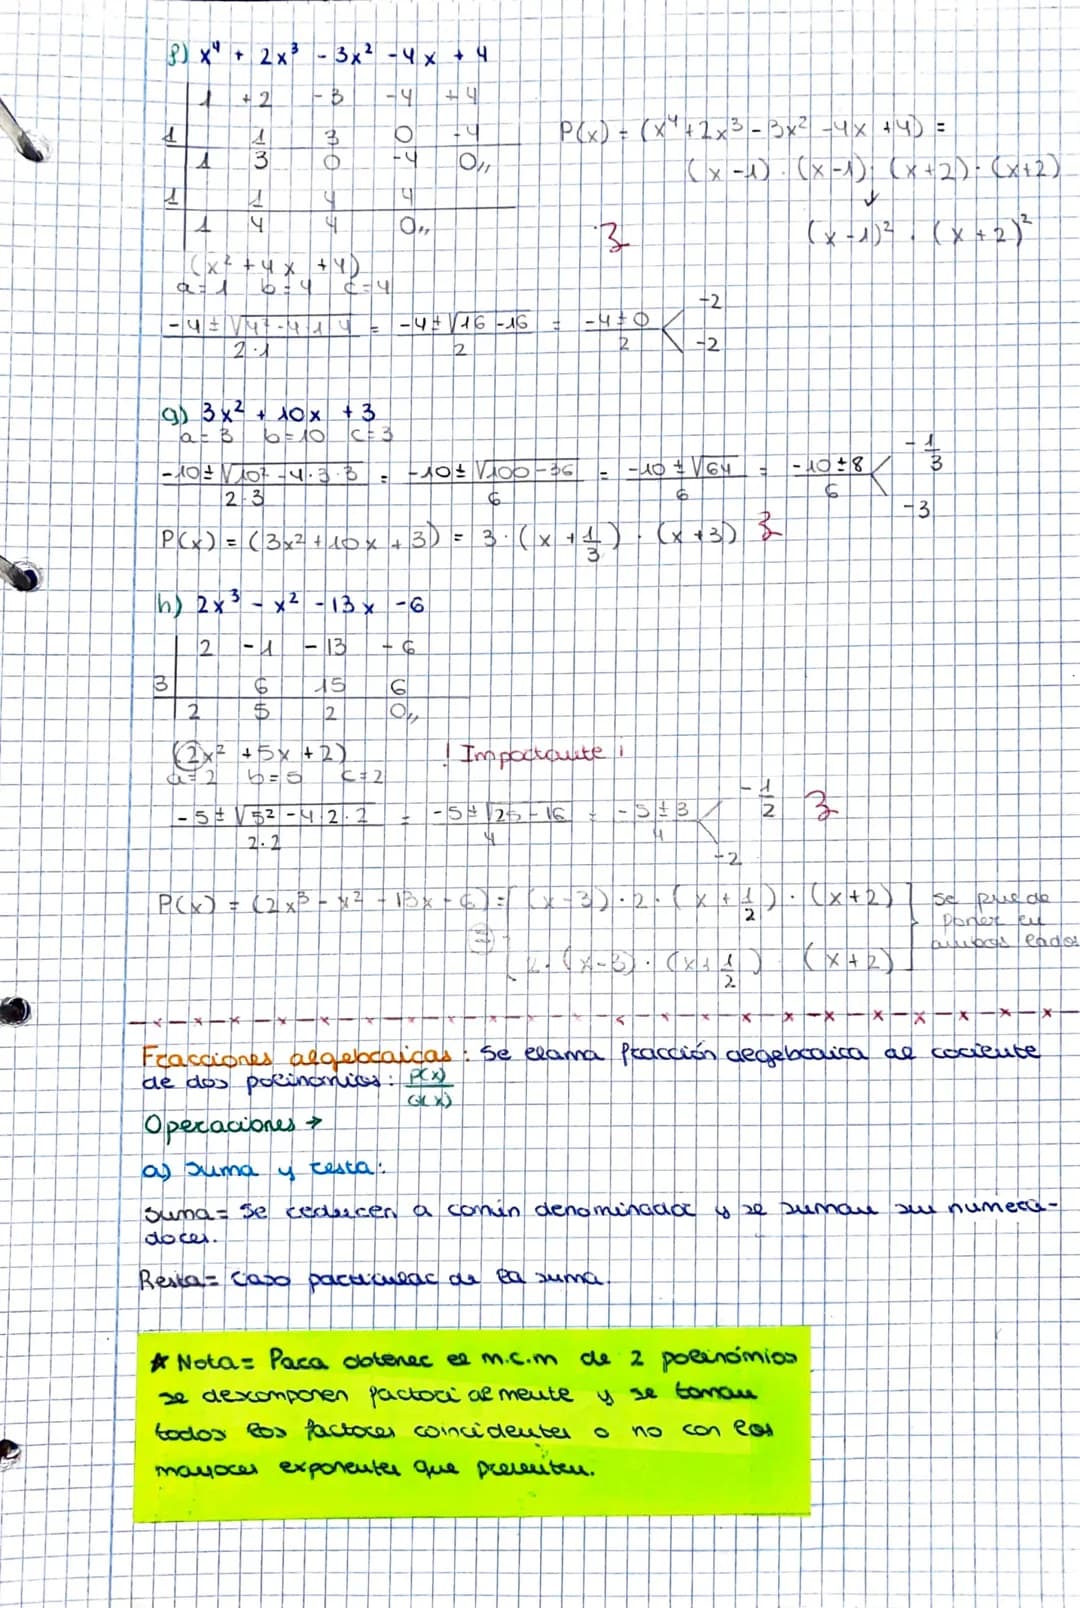 f) x⁴ + 2x³ - 3x² - 4x + 4
1 +2 -3 -4 +4
1 1 3 0 -4
1 3 0 -4 0,,
1 1 4 4
1 4 4 0,,
P(x) = (x⁴ + 2x³ - 3x² - 4x + 4) =
(x - 1) · (x - 1) · (x + 2) · (x + 2)
↓
(x - 1)² · (x + 2)²
(x² + 4x + 4)
a = 1 b = 4 c = 4
(-4 ± √(4² - 4·1·4)) / (2·1) = (-4 ± √(16 - 16)) / 2 = (-4 ± 0) / 2 < -2
-2
g) 3x² + 10x + 3
a = 3 b = 10 c = 3
(-10 ± √(10² - 4·3·3)) / (2·3) = (-10 ± √(100 - 36)) / 6 = (-10 ± √64) / 6 = (-10 ± 8) / 6 < -1/3
-3
P(x) = (3x² + 10x + 3) = 3 · (x + 1/3) · (x + 3)
h) 2x³ - x² - 13x - 6
2 -1 -13 -6
3 6 15 6
2 5 2 0,,
(2x² + 5x + 2) ! Importante ¡
a = 2 b = 5 c = 2
(-5 ± √(5² - 4·2·2)) / (2·2) = (-5 ± √(25 - 16)) / 4 = (-5 ± 3) / 4 < -1/2
-2
P(x) = (2x³ - x² - 13x - 6) = [(x - 3) · 2 · (x + 1/2) · (x + 2)
= 2 · (x - 3) · (x + 1/2) · (x + 2)]
se puede
poner en
ambos lados
Fracciones algebraicas: Se llama fracción algebraica al cociente
de dos polinomios: P(x)/Q(x)
Operaciones →
a) Suma y resta:
Suma = Se reducen a común denominador y se suman sus numera-
dores.
Resta = Caso particular de la suma.
* Nota = Para obtener el m.c.m de 2 polinómios
se descomponen factorialmente y se toman
todos los factores coincidentes o no con los
mayores exponentes que presenten.